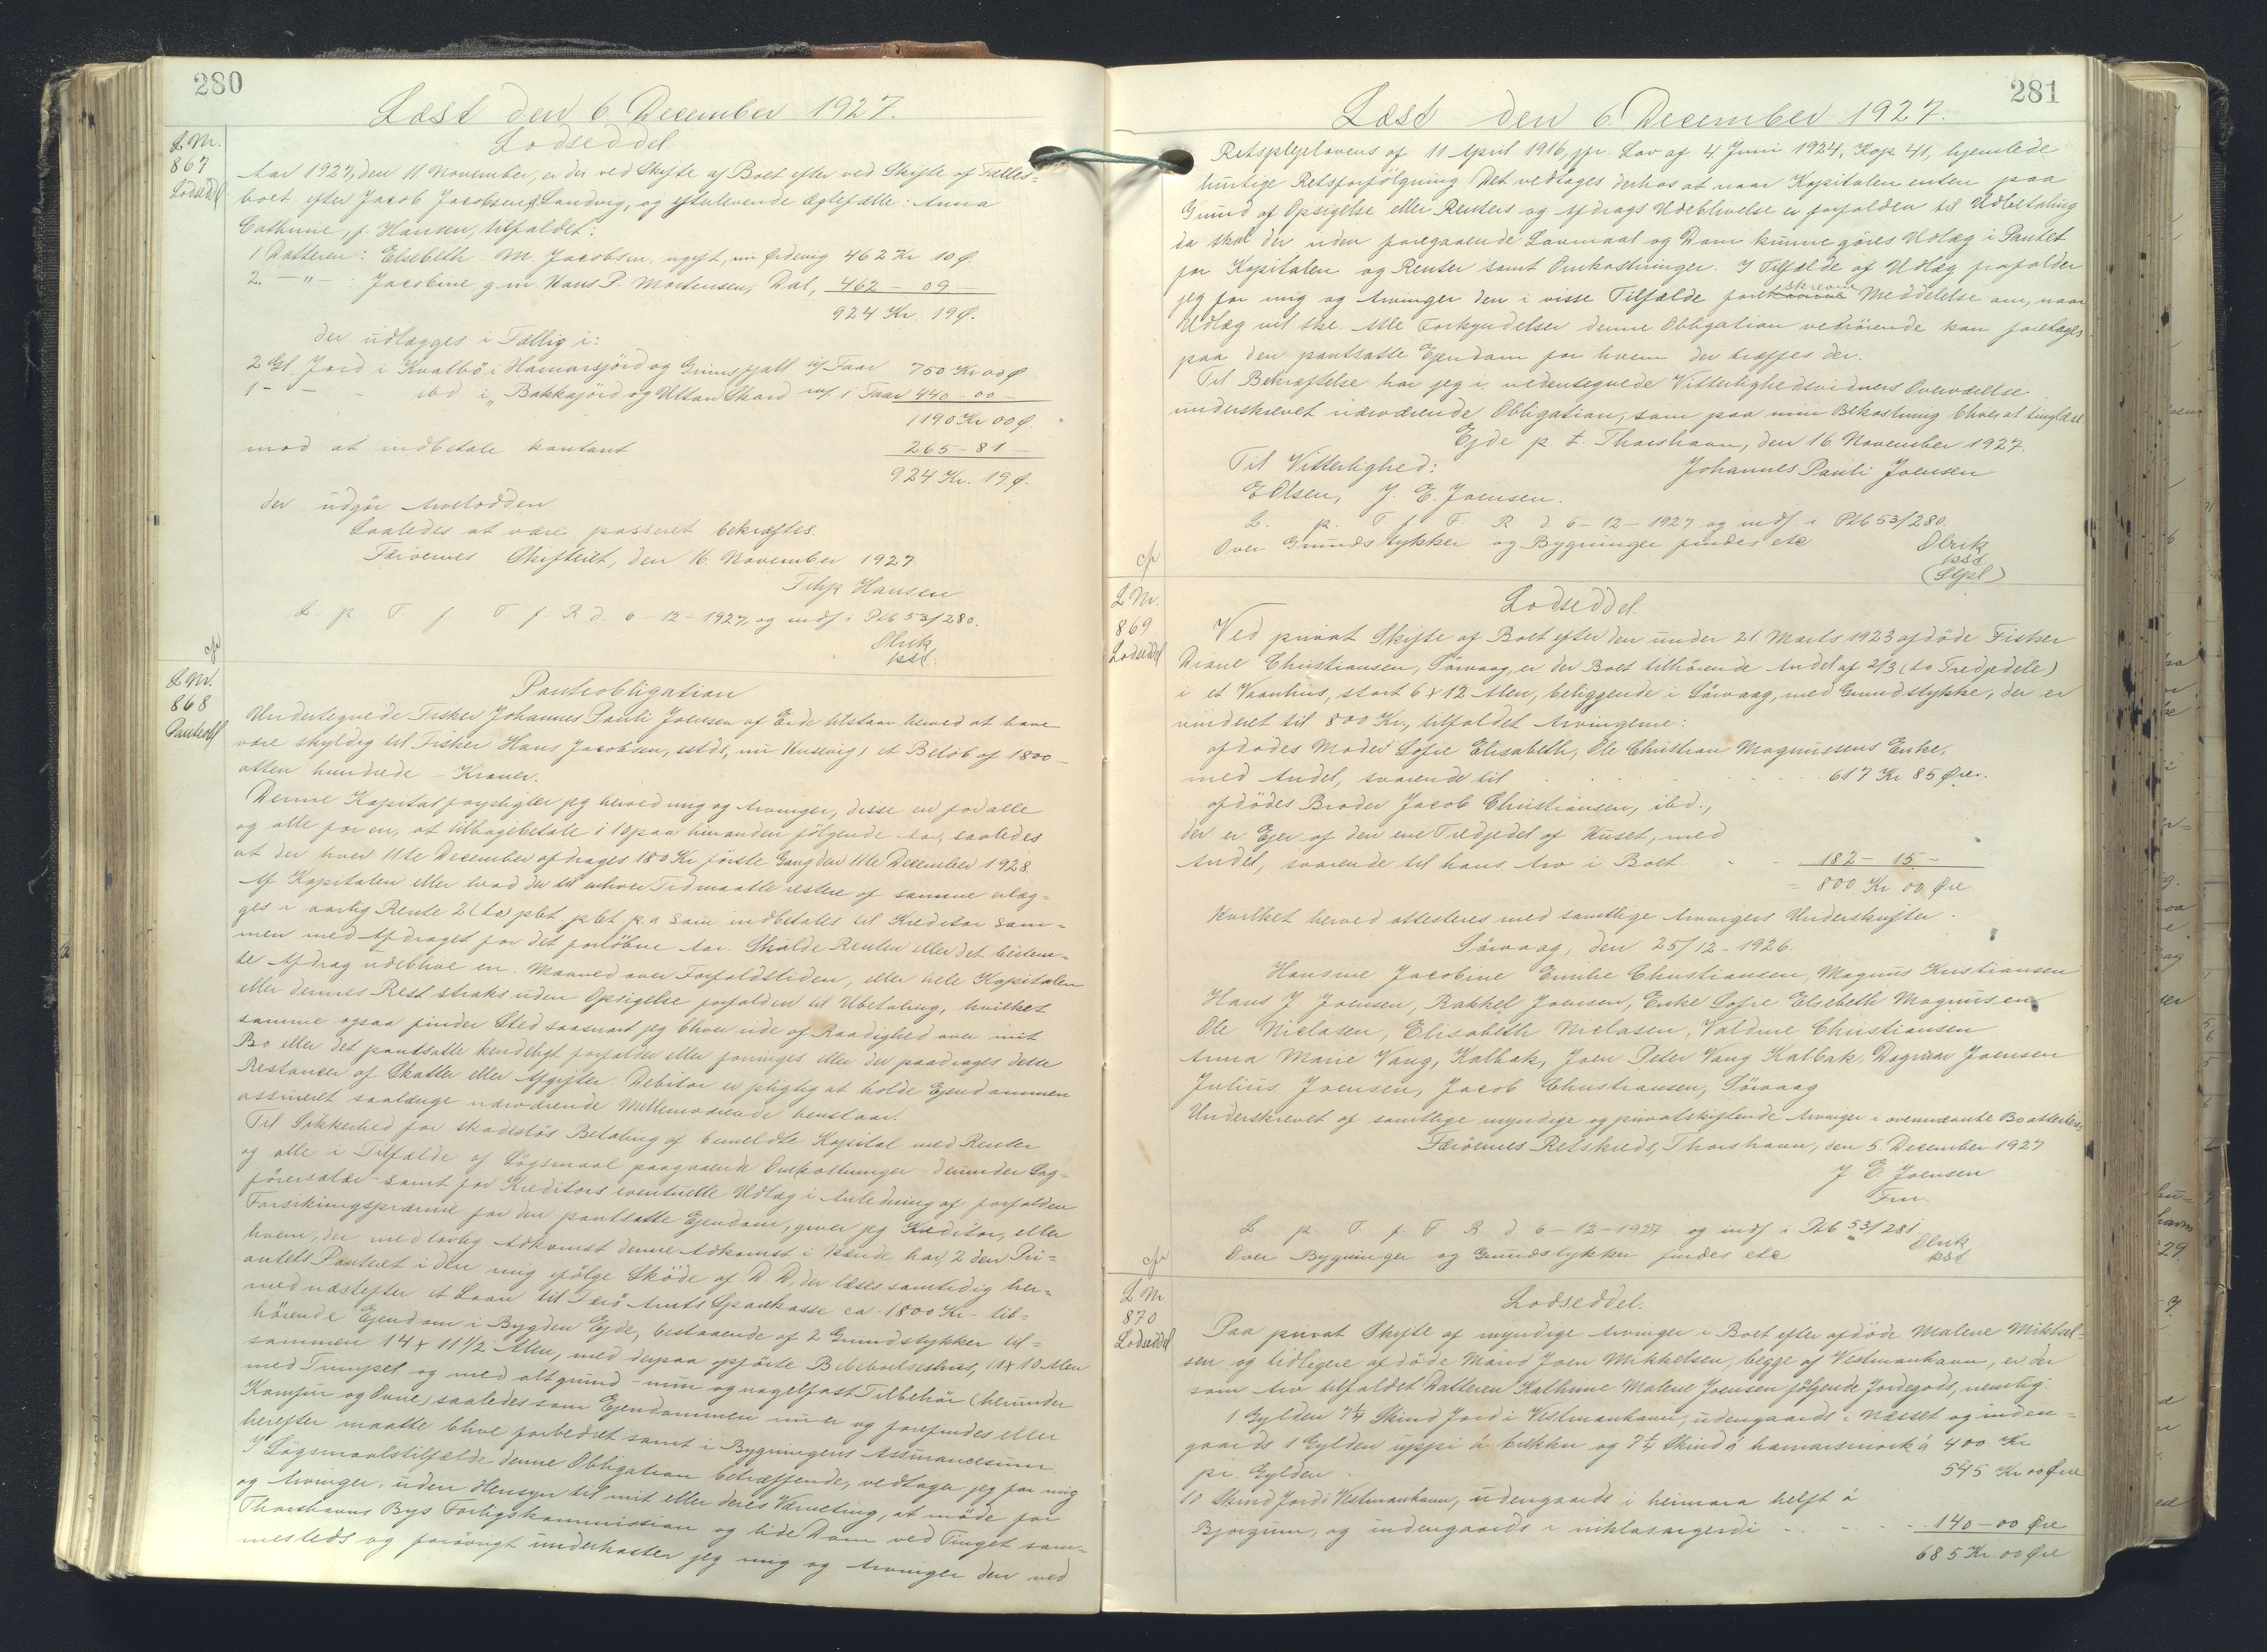 280
Læst den 6. December 1927.
L Nr.
867
Lodseddel
Lodseddel.
Aar 1927, den 11 November, er der ved Skifte af Boet efter ved Skifte af Fælles-
boet efter Jacob Jacobsen, Sandvig, og efterlevende Ægtefælle: Anna
Cathrine, f. Hansen, tilfaldet:
1 Datteren: Elsebeth M. Jacobsen, ugift, nu Ørdevig 462 Kr 10 Ø.
2. — " — : Jacobine, g. m. Hans P. Mortensen, Dal, 462 — 09 —
924 Kr. 19 Ø.
der udlægges i Fællig i:
2 Gl. Jord i Kvalbø i Hamarsjørd og Grimsfjall m/ Faar 750 Kr 00 Ø
1 — — - ibd i „ Bakkajørd og Uttan Skard m/ 1 Faar 440 - 00 —
1190 Kr 00 Ø.
mod at indbetale kontant 265 - 81 —
924 Kr. 19 Ø.
der udgør Arvelodden
Saaledes at være passeret bekræftes.
Færøernes Skifteret, den 16. November 1927
Filip Hansen
L. p T f T f. R d. 6 - 12 - 1927, og indf i Ptb 53/280.
Olrik
pst.
cfr
L Nr.
868
Panteobl
Panteobligation
Undertegnede Fisker Johannes Pauli Joensen af Eide tilstaar herved at have
være skyldig til Fisker Hans Jacobsen, sstds, nu Husevig, et Beløb af 1800 —
atten hundrede — Kroner.
Denne Kapital forpligter jeg herved mig og Arvinger, disse en for alle
og alle for en, at tilbagebetale i 10 paa hinanden følgende Aar, saaledes
at der hver 11te December afdrages 180 Kr første Gang den 11te December 1928.
Af Kapitalen eller hvad der til enhver Tid maatte restere af samme erlæg-
ges i aarlig Rente 2 (to) pCt. pCt p. a som indbetales til Kreditor sam-
men med Afdraget for det forløbne Aar. Skulde Renten eller det bestem-
te Afdrag udeblive en Maaned over Forfaldstiden, eller hele Kapitalen
eller dennes Rest straks uden Opsigelse forfalden til Ubetaling, hvilket
samme ogsaa finder Sted saasnart jeg bliver ude af Raadighed over mit
Bo eller det pantsatte kendeligt forfalder eller forringes eller der paadrages dette
Restancer af Skatter eller Afgifter. Debitor er pligtig at holde Ejendommen
assureret saalænge nærværende Mellemværende henstaar.
Til Sikkerhed for skadesløs Betaling af bemeldte Kapital med Renter
og alle i Tilfælde af Søgsmaal paagaaende Omkostninger - derunder Sag-
førersalær - samt for Kreditors eventuelle Udlæg i Anledning af forfalden
Forsikringspræmie for den pantsatte Ejendom, giver jeg Kreditor, eller
hvem, der med lovlig Adkomst denne Adkomst i Hænde har, 2 den Pri-
oritets Panteret i den mig ifølge Skøde af D D, der læses samtidig her-
med næstefter et Laan til Færø Amts Sparekasse ca. 1800 Kr - til-
hørende Ejendom i Bygden Ejde, bestaaende af 2 Grundstykker til-
sammen 14 x 11 1/2 Alen, med derpaa opførte Beboelseshus, 11 x 10 Alen
med Tunspel og med alt grund - mur og nagelfast Tilbehør (herunder
Komfur og Ovne) saaledes som Ejendommen nu er og forefindes eller
herefter maatte blive forbedret samt i Bygningens Assurancesum.
I Søgsmaalstilfælde denne Obligation betræffende, vedtager jeg for mig
og Arvinger, uden Hensyn til mit eller deres Værneting, at møde for
Thorshavns Bys Forligskommission og lide Dom ved Tinget sam-
mesteds og forøvrigt underkaster jeg mig og Arvinger den ved
281
Læst den 6. December 1927.
Retsplejelovens af 11 April 1916, jfr. Lov af 4. Juni 1924, Kap 41, hjemlede
hurtige Retsforfølgning. Det vedtages derhos at naar Kapitalen enten paa
Grund af Opsigelse eller Renters og Afdrags Udeblivelse er forfalden til Udbetaling
da skal der uden foregaaende Lovmaal og Dom kunne gøres Udlæg i Pantet
for Kapitalen og Renter samt Omkostninger. I Tilfælde af Udlæg frafalder
jeg for mig og Arvinger den i visse Tilfælde foreskrevne Meddelelse om, naar
Udlæg vil ske. Alle Forkyndelser denne Obligation vedrørende kan foretages
paa den pantsatte Ejendom for hvem der træffes der.
Til Bekræftelse har jeg i vedentegnede Vitterlighedsvidners Overværelse
underskrevet nærværende Obligation, som paa min Bekostning bliver at tinglæse.
Ejde p t. Thorshavn, den 16 November 1927.
Til Vitterlighed: Johannes Pauli Joensen
E Olsen, J. E. Joensen.
L. p. T f. F. R. d. 6 - 12 - 1927 og indf i Ptb 53/280.
Over Grundstykker og Bygninger findes etc
Olrik
pst
(Stpl)
cfr
L Nr.
869
Lodseddel
Lodseddel.
Ved privat Skifte af Boet efter den under 21 Marts 1923 afdøde Fisker
Diane Christiansen, Sørvaag, er der Boet tilhørende Andel af 2/3 (to Tredjedele)
i et Vaanhus, stort 6 x 12 Alen, beliggende i Sørvaag, med Grundstykke, der er
vurderet til 800 Kr., tilfaldet Arvingerne:
afdødes Moder Sofie Elisabeth, Ole Christian Magnussens Enke,
med Andel, svarende til 617 Kr 85 Øre.
afdødes Broder Jacob Christiansen, ibd.,
der er Ejer af den ene Tredjedel af Huset, med
Andel, svarende til hans Arv i Boet 182 — 15 —
= 800 Kr 00 Øre.
Hvilket herved attesteres med samtlige Arvingers Underskrifter.
Sørvaag, den 25/12 - 1926.
Hansine Jacobine Emilie Christiansen, Magnus Kristiansen
Hans J. Joensen, Rakkel Joensen, Enke Sofie Elsebeth Magnusen
Ole Niclasen, Elisabeth Niclasen, Valdine Christiansen
Anna Marie Vang, Kalbak, Joen Peter Vang Kalbak, Dagmar Joensen
Julius Joensen, Jacob Christiansen, Sørvaag
Underskrevet af samtlige myndige og privatskiftende Arvinger i ovennævnte Bo attesteres
Færøernes Retskreds, Thorshavn, den 5. December 1927
J E Joensen
Fm.
L p. T f. F R d 6 - 12 - 1927 og indf i Ptb 53/281
Over Bygninger og Grundstykker findes etc
Olrik
pst
cfr
L. Nr
870
Lodseddel
Lodseddel.
Paa privat Skifte af myndige Arvinger i Boet efter afdøde Malene Mikkel-
sen og tidligere afdøde Mand Joen Mikkelsen, begge af Vestmanhavn, er der
som Arv tilfaldet Datteren Kathrine Malene Joensen følgende Jordegods, nemlig:
1 Gylden 7 1/4 Skind Jord i Vestmanhavn, udengaards i Næsset og inden-
gaards 1 Gylden uppi á brekku og 7 1/4 Skind á hamarsmørk á 400 Kr
pr. Gylden . 545 Kr 00 Øre
10 Skind Jord i Vestmanhavn, udengaards i heimara helft á
Bjørgum, og indengaards i niklasargerdi - - - - 140 - 00 Øre
685 Kr. 00 Øre